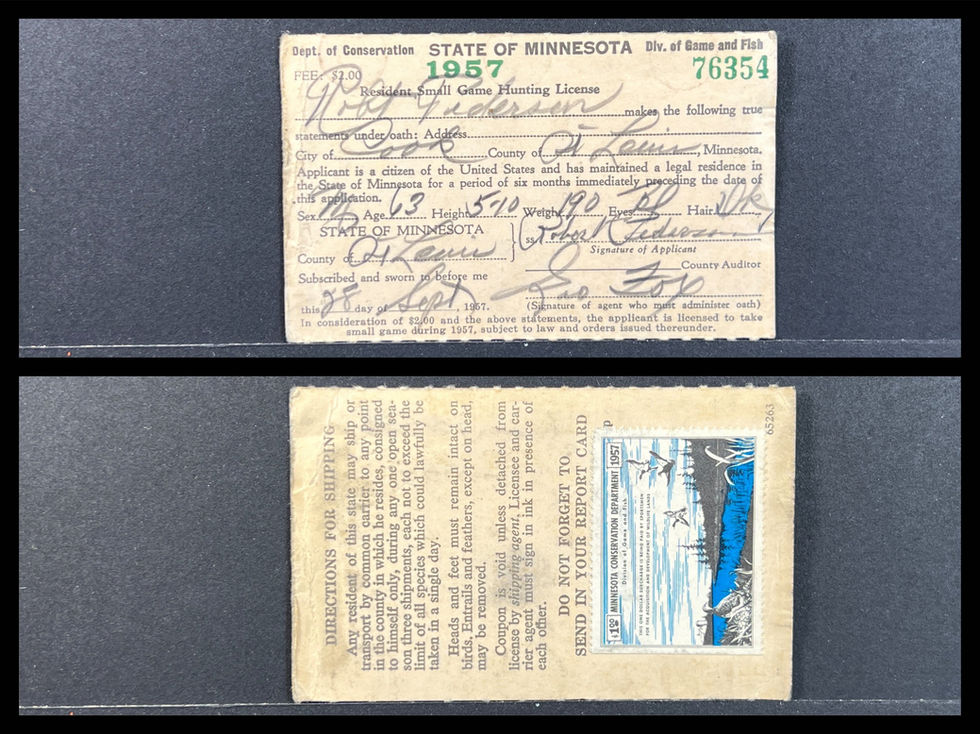 Dept. of Conservation STATE OF MINNESOTA Div. of Game and Fish
FEE: $2.00 1957 76354
Resident Small Game Hunting License
Robt Pederson makes the following true
statements under oath: Address
City of Cook County of St Louis, Minnesota.
Applicant is a citizen of the United States and has maintained a legal residence in
the State of Minnesota for a period of six months immediately preceding the date of
this application.
Sex M Age 63 Height 5-10 Weight 190 Eyes Bl Hair Dk
STATE OF MINNESOTA
County of St Louis ss Robert Pederson
Signature of Applicant
County Auditor
Subscribed and sworn to before me
Geo Fox
this 28 day of Sept, 1957. (Signature of agent who must administer oath)
In consideration of $2.00 and the above statements, the applicant is licensed to take
small game during 1957, subject to law and orders issued thereunder.
DIRECTIONS FOR SHIPPING
Any resident of this state may ship or
transport by common carrier to any point
in the county in which he resides, consigned
to himself only, during any one open sea-
son three shipments, each not to exceed the
limit of all species which could lawfully be
taken in a single day.
Heads and feet must remain intact on
birds. Entrails and feathers, except on head,
may be removed.
Coupon is void unless detached from
license by shipping agent. Licensee and car-
rier agent must sign in ink in presence of
each other.
DO NOT FORGET TO
SEND IN YOUR REPORT CARD
$1.00 MINNESOTA CONSERVATION DEPARTMENT 1957
Division of Game and Fish
THIS ONE DOLLAR SURCHARGE IS BEING PAID BY SPORTSMEN
FOR THE ACQUISITION AND DEVELOPMENT OF WILDLIFE LANDS
65263